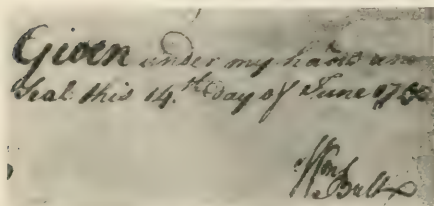 Given under my hand and
Seal this 14.th day of June
Wm